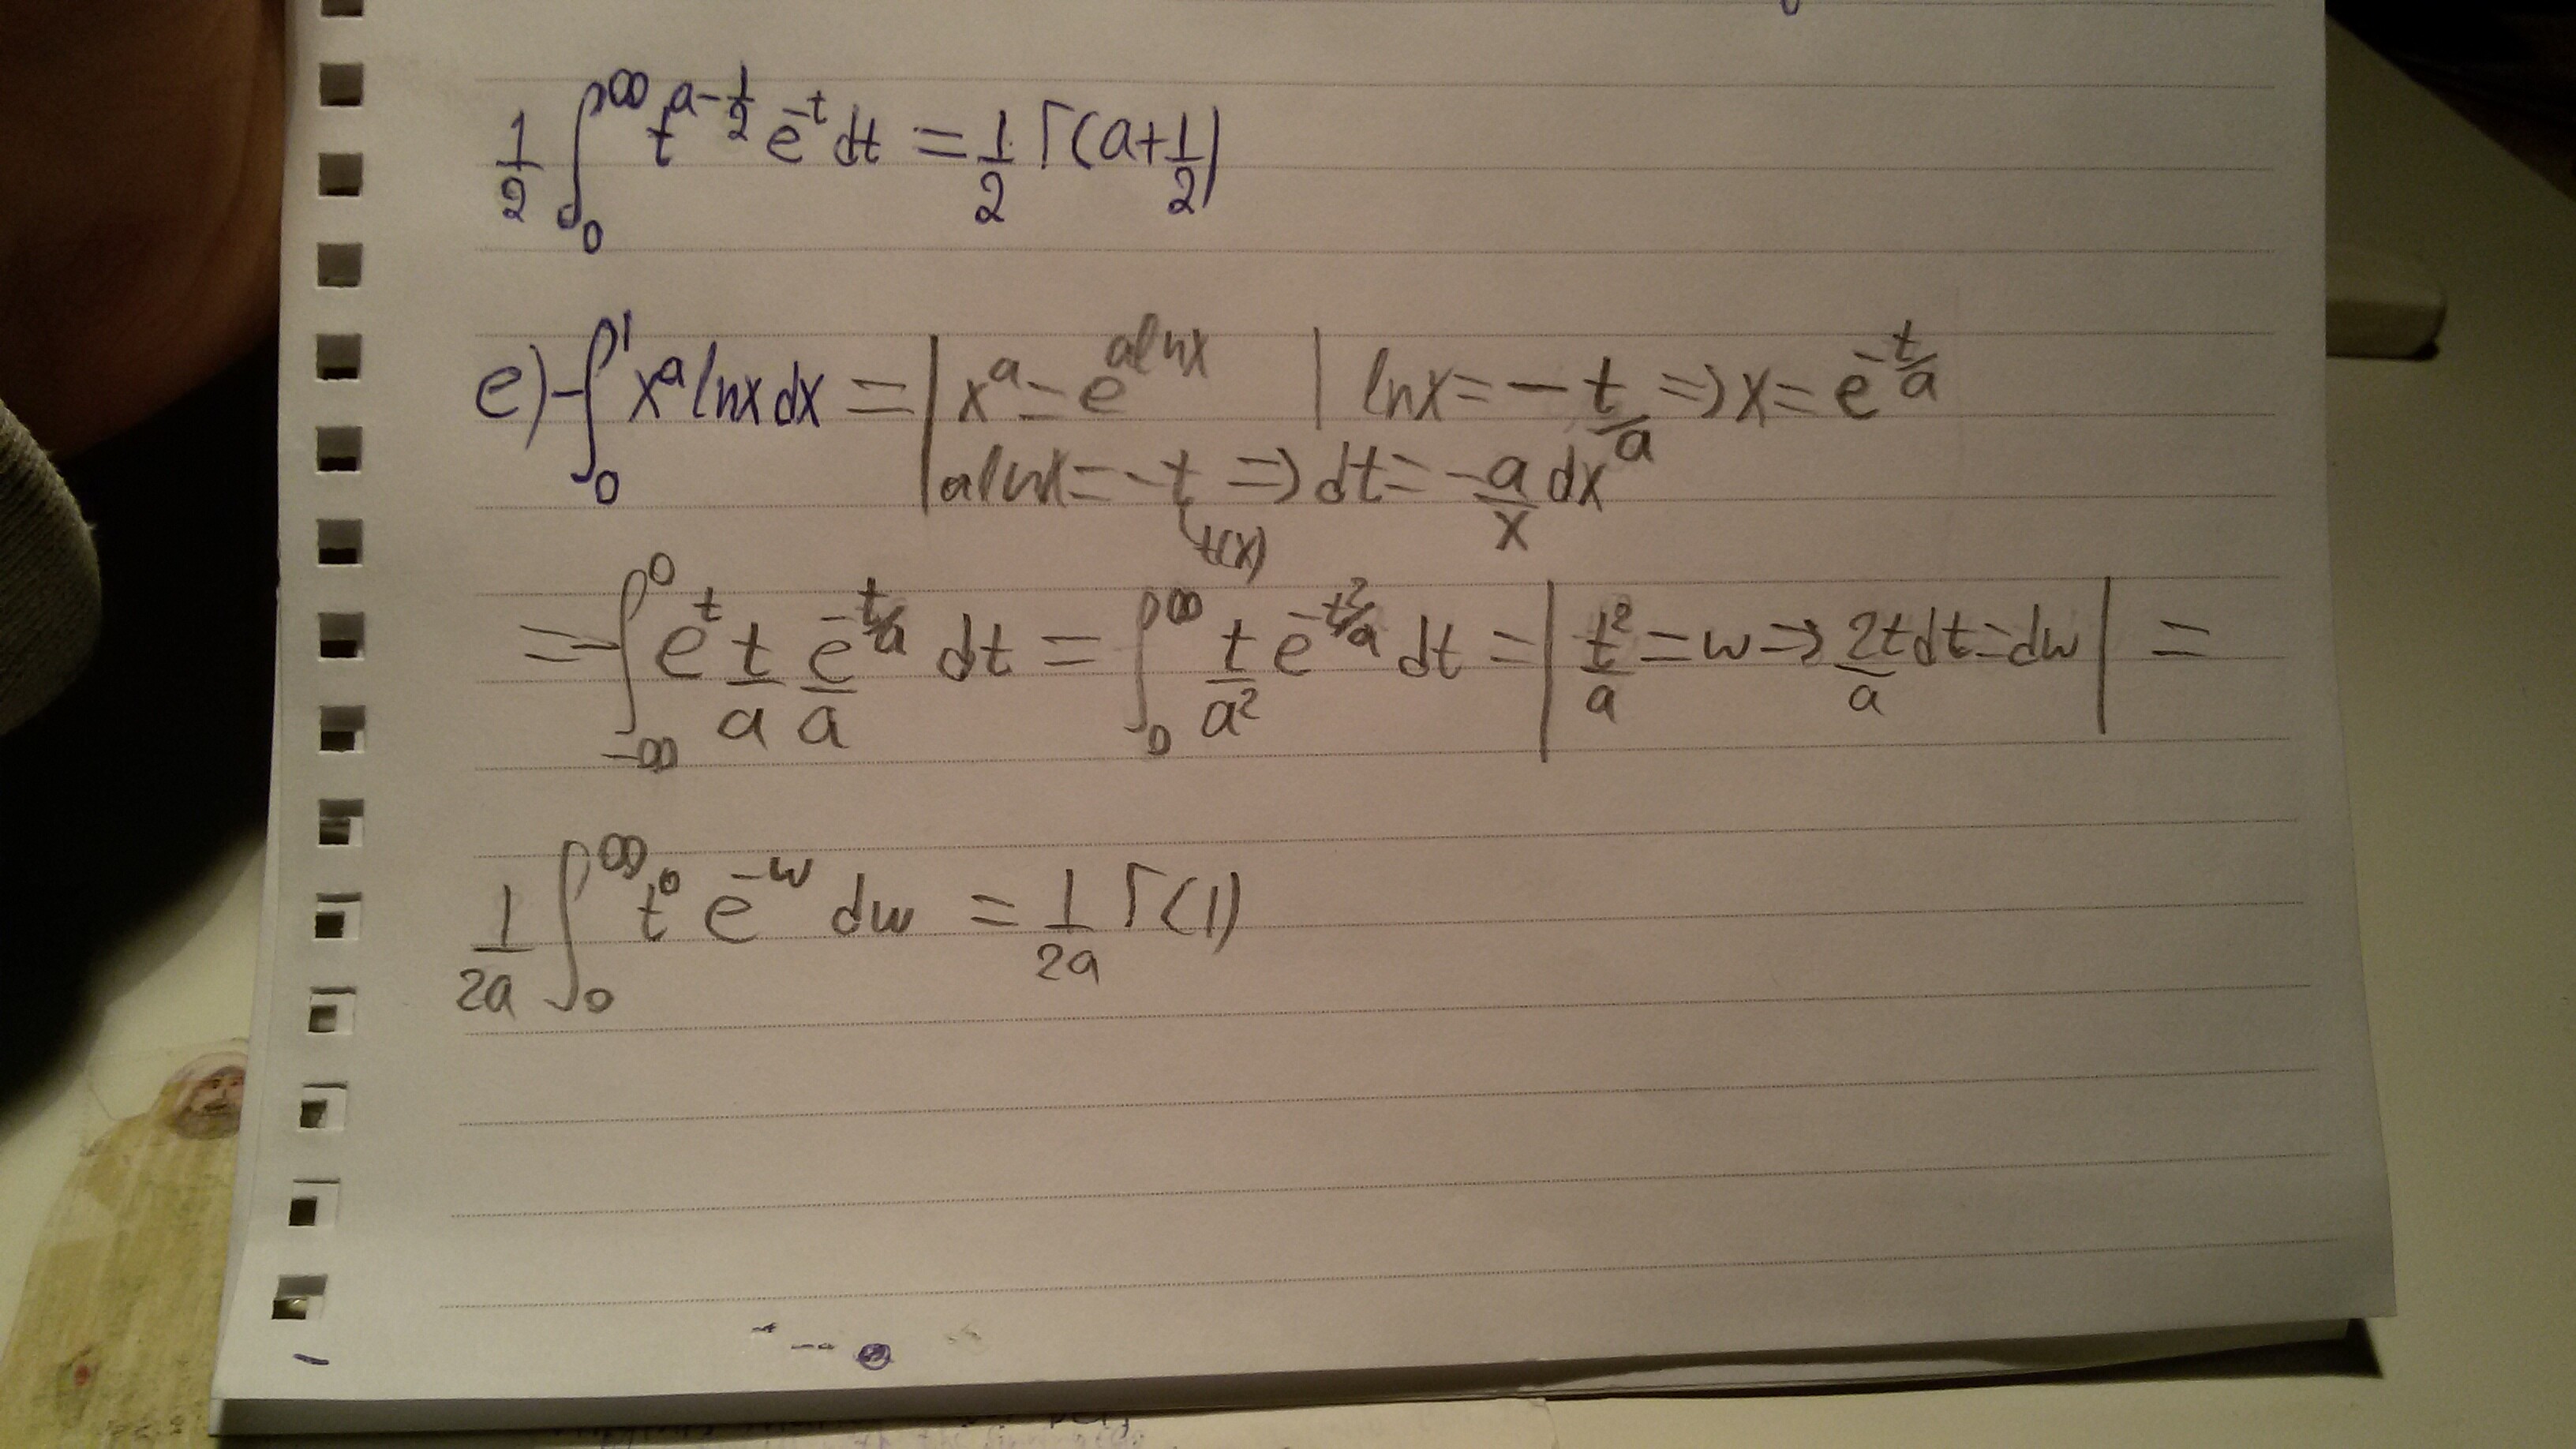 1/2 ∫₀^∞ t^(a-1/2) e^(-t) dt = 1/2 Γ(a+1/2)
e) -∫₀^1 x^a lnx dx = | x^a = e^(alnx) | lnx = -t/a => x = e^(-t/a)
| alnx = -t => dt = -a/x dx
t(x)
= -∫_(-∞)^0 e^t t/a e^(-t/a)/a dt = ∫₀^∞ t/a² e^(-t²/a) dt = | t²/a = w => 2t/a dt = dw | =
1/2a ∫₀^∞ t^0 e^(-w) dw = 1/2a Γ(1)